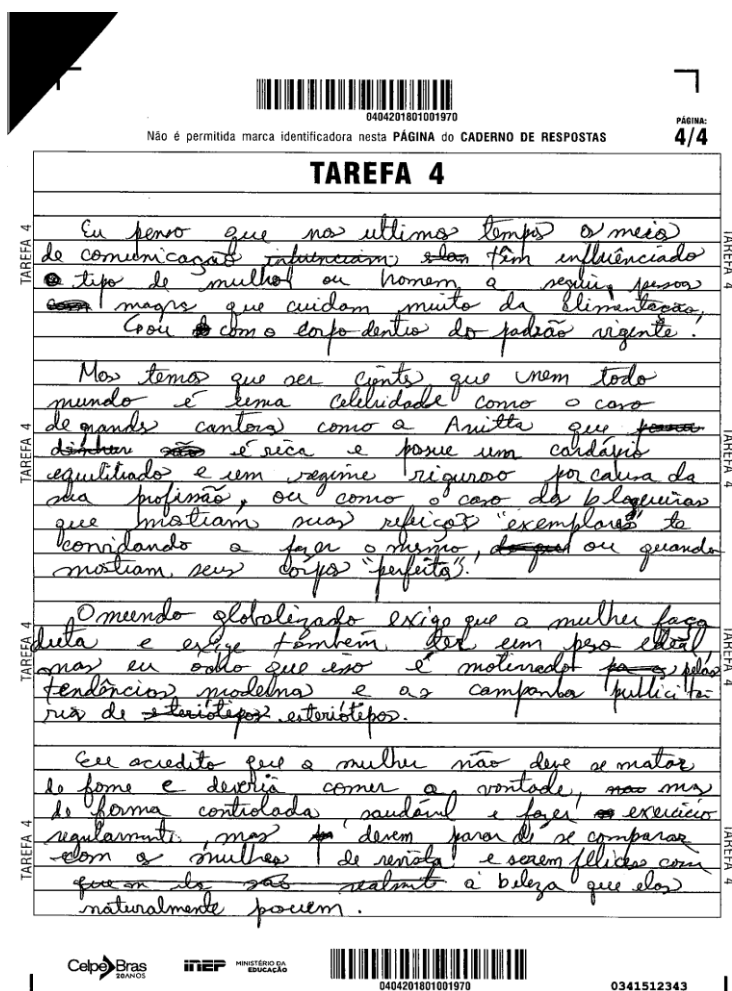 0404201801001970
Não é permitida marca identificadora nesta PÁGINA do CADERNO DE RESPOSTAS
PÁGINA:
4/4
TAREFA 4
TAREFA 4
TAREFA 4
Eu penso que nos ulltimos tempos os meios
de comunicação influenciam, elas têm influênciado
o tipo de mulher ou homem a seguir, pessoas
com magras que cuidam muito da alimentação,
e com o corpo dentro do padrão vigente.
TAREFA 4
TAREFA 4
Mas temos que ser cientes que nem todo
mundo é uma celebridade como o caso
de grandes cantoras como a Anitta que
são é rica e posue um cardápio
equilitiado e um regime riguroso por causa da
sua profissão, ou como o caso das blogueiras
que mostram suas refeiçoes "exemplares" te
convidando a fazer o mesmo, ou quando
mostram seus corpos "perfeitos".
TAREFA 4
TAREFA 4
O mundo globalizado exige que a mulher faça
dieta e exige também ter um peso ideal,
mas eu acho que isso é motivado pelas
tendências moderna e as campanha publicitá
rias de esteriótipos esteriótipos.
TAREFA 4
TAREFA 4
Eu acredito que a mulher não deve se matar
de fome e deveria comer a vontade, mas
de forma controlada, saudável e fazer exercicio
regularmente, mas devem parar de se comparar
com as mulhes "de revista" e serem fellices com
que são realmente a beleza que elas
naturalmente pocuem.
Celpe Bras
20 ANOS
inep
MINISTÉRIO DA
EDUCAÇÃO
0404201801001970
0341512343